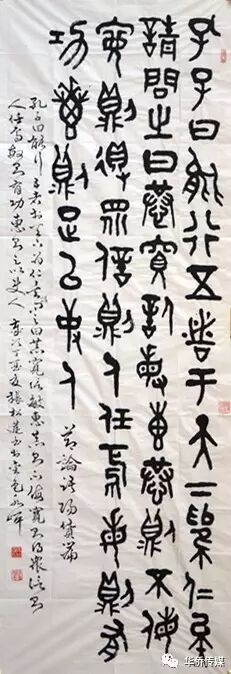 孔子曰能行五者于天下為仁矣
請問之曰恭寬信敏惠恭則不侮
寬則得眾信則人任焉敏則有
功惠則足以使人 
論語陽貨篇
孔子曰能行五者於天下為仁矣請問之曰恭寬信敏惠恭則不侮寬則得眾信則
人任焉敏則有功惠則足以使人 歲次丁酉 張松蓮書
华侨传媒